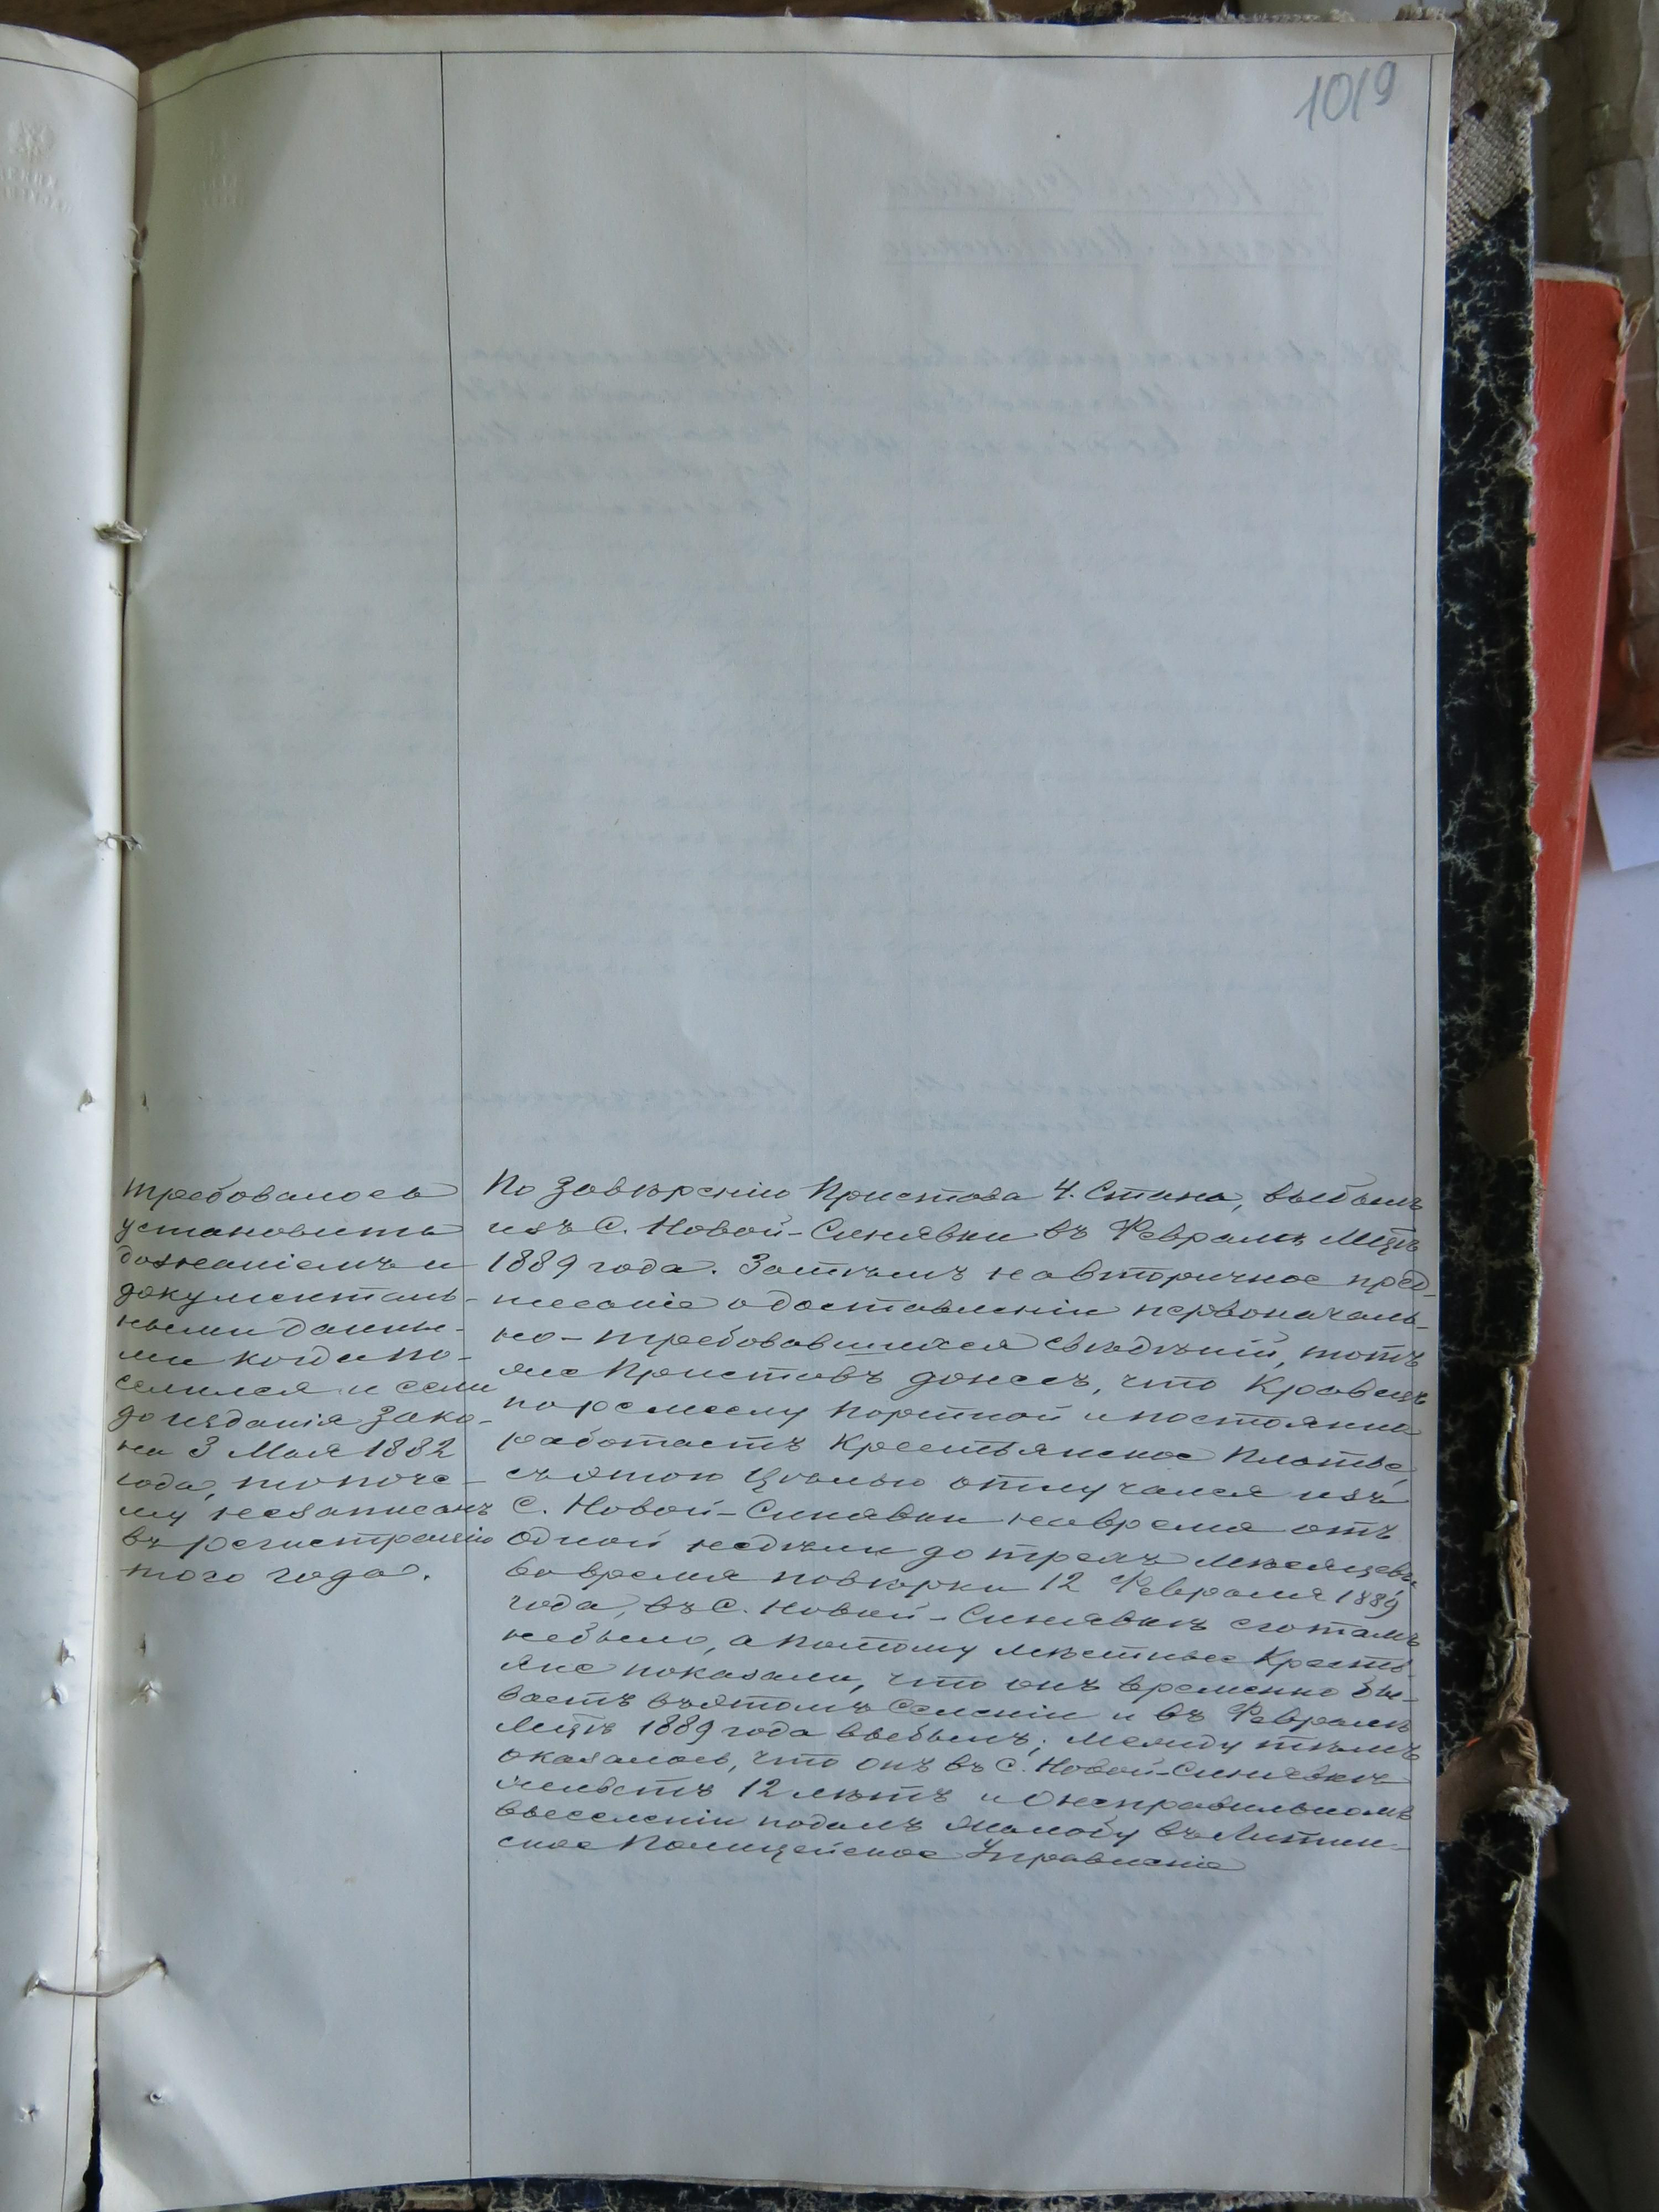 1019
требовалось
установить
дознаніемъ и
документаль-
ными данны-
ми когда по-
селился и если
до изданія зако-
на 3 Мая 1882
года, то поче-
му незаписанъ
въ регистрацію
того года.
По завѣренію Пристава 4. Стана, выбылъ
изъ С. Новой-Синявки въ Февралѣ Мцѣ
1889 года. Затѣмъ на вторичное пред-
писаніе о доставленіи первоначаль-
но-требовавшихся свѣдѣній, тотъ
же Приставъ донесъ, что Кравецъ
по ремеслу портной и постоянно
работаетъ Крестьянское Платье,
съ этою Цѣлью отлучался изъ
С. Новой-Синявки на время отъ
одной недѣли до трехъ мѣсяцевъ,
во время повѣрки 12 Февраля 1889
года, въ С. Новой-Синявкѣ его тамъ
небыло, а потому мѣстные Кресть-
яне показали, что онъ временно бы-
ваетъ въ этомъ Селеніи и въ Февралѣ
Мцѣ 1889 года выбылъ; между тѣмъ
оказалось, что онъ въ С. Новой-Синявкѣ
живетъ 12 лѣтъ и о неправильномъ
выселеніи подалъ жалобу въ Литин-
ское Полицейское Управленіе